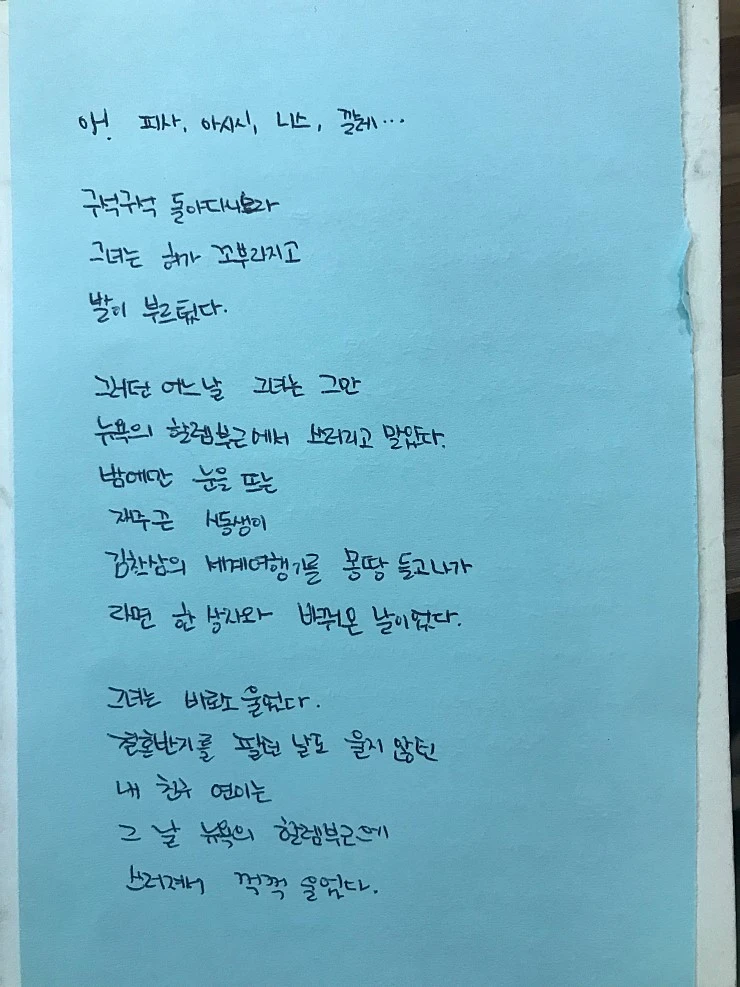 아! 피사, 아시시, 니스, 깔레...
구석구석 돌아다니느라
그녀는 허리가 꼬부라지고
발이 부르텄다.
그러던 어느날 그녀는 그만
뉴욕의 할렘부근에서 쓰러지고 말았다.
밤에만 눈을 뜨는
재주꾼 시동생이
김찬삼의 세계여행기를 몽땅 들고나가
라면 한 상자와 바꿔온 날이었다.
그녀는 비로소 울었다.
결혼반지를 팔던 날도 울지 않던
내 친구 연이는
그 날 뉴욕의 할렘부근에
쓰러져서 꺽꺽 울었다.